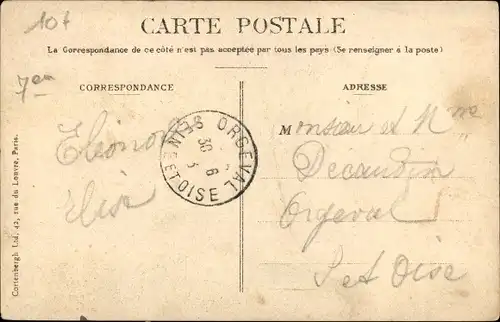 10f
CARTE POSTALE
La Correspondance de ce côté n'est pas acceptée par tous les pays (Se renseigner à la poste)
7em
CORRESPONDANCE
ADRESSE
Eleonor
Elise
ORGEVAL
SEINE ET OISE
30
6
Monsieur et Mme
Decaudin
Orgeval
S et Oise
Cortenbergh Ltd, 42, rue du Louvre, Paris.